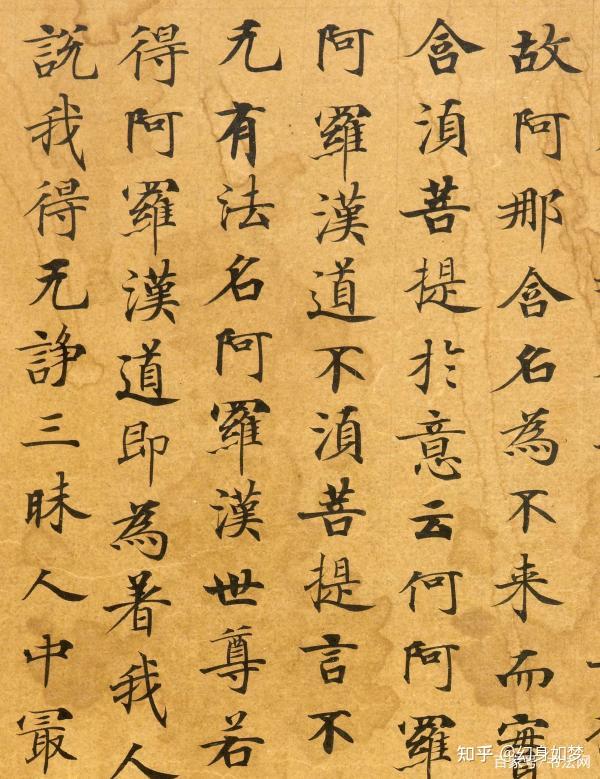 故阿那含名為不来而實
含湏菩提於意云何阿羅
阿羅漢道不湏菩提言不
无有法名阿羅漢世尊若
得阿羅漢道即為著我人
說我得无諍三昧人中冣
知乎 @幻身如梦
百家号/书法网